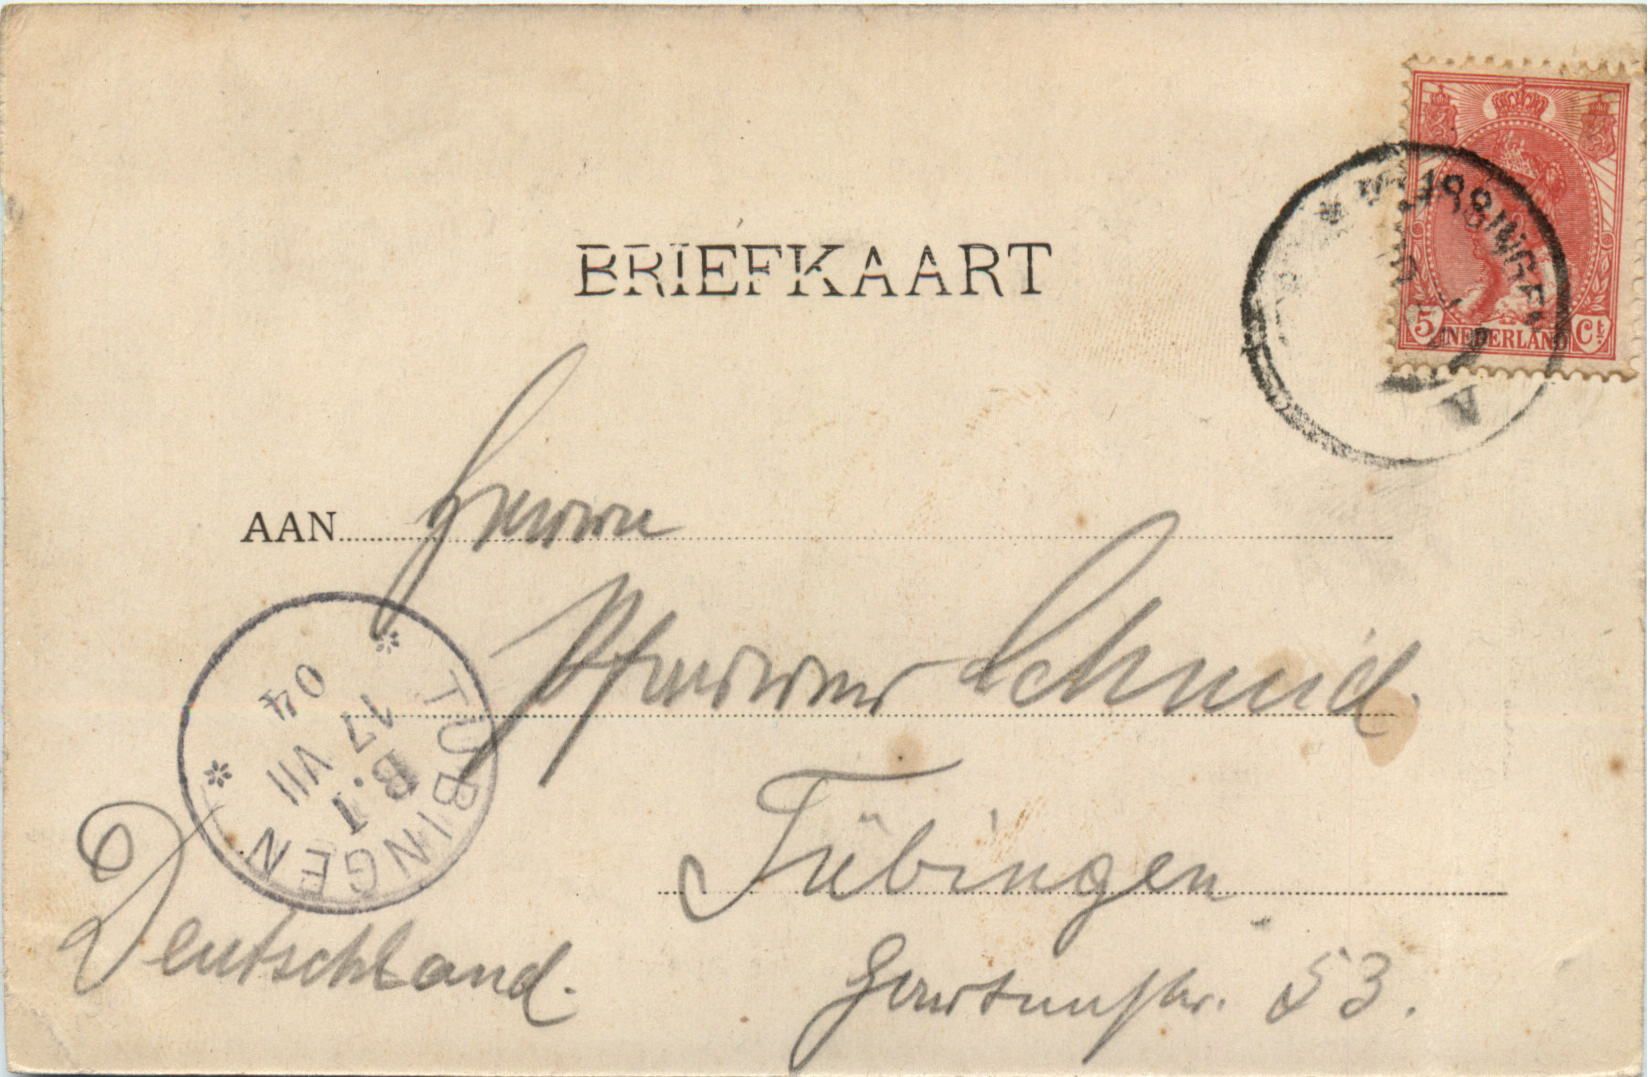 BRIEFKAART
5 NEDERLAND Ct
A
AAN Herrn
Pfarrer Schmid.
Tübingen
Gartenstr. 53.
Deutschland.
TÜBINGEN
B.1
17 VII
04